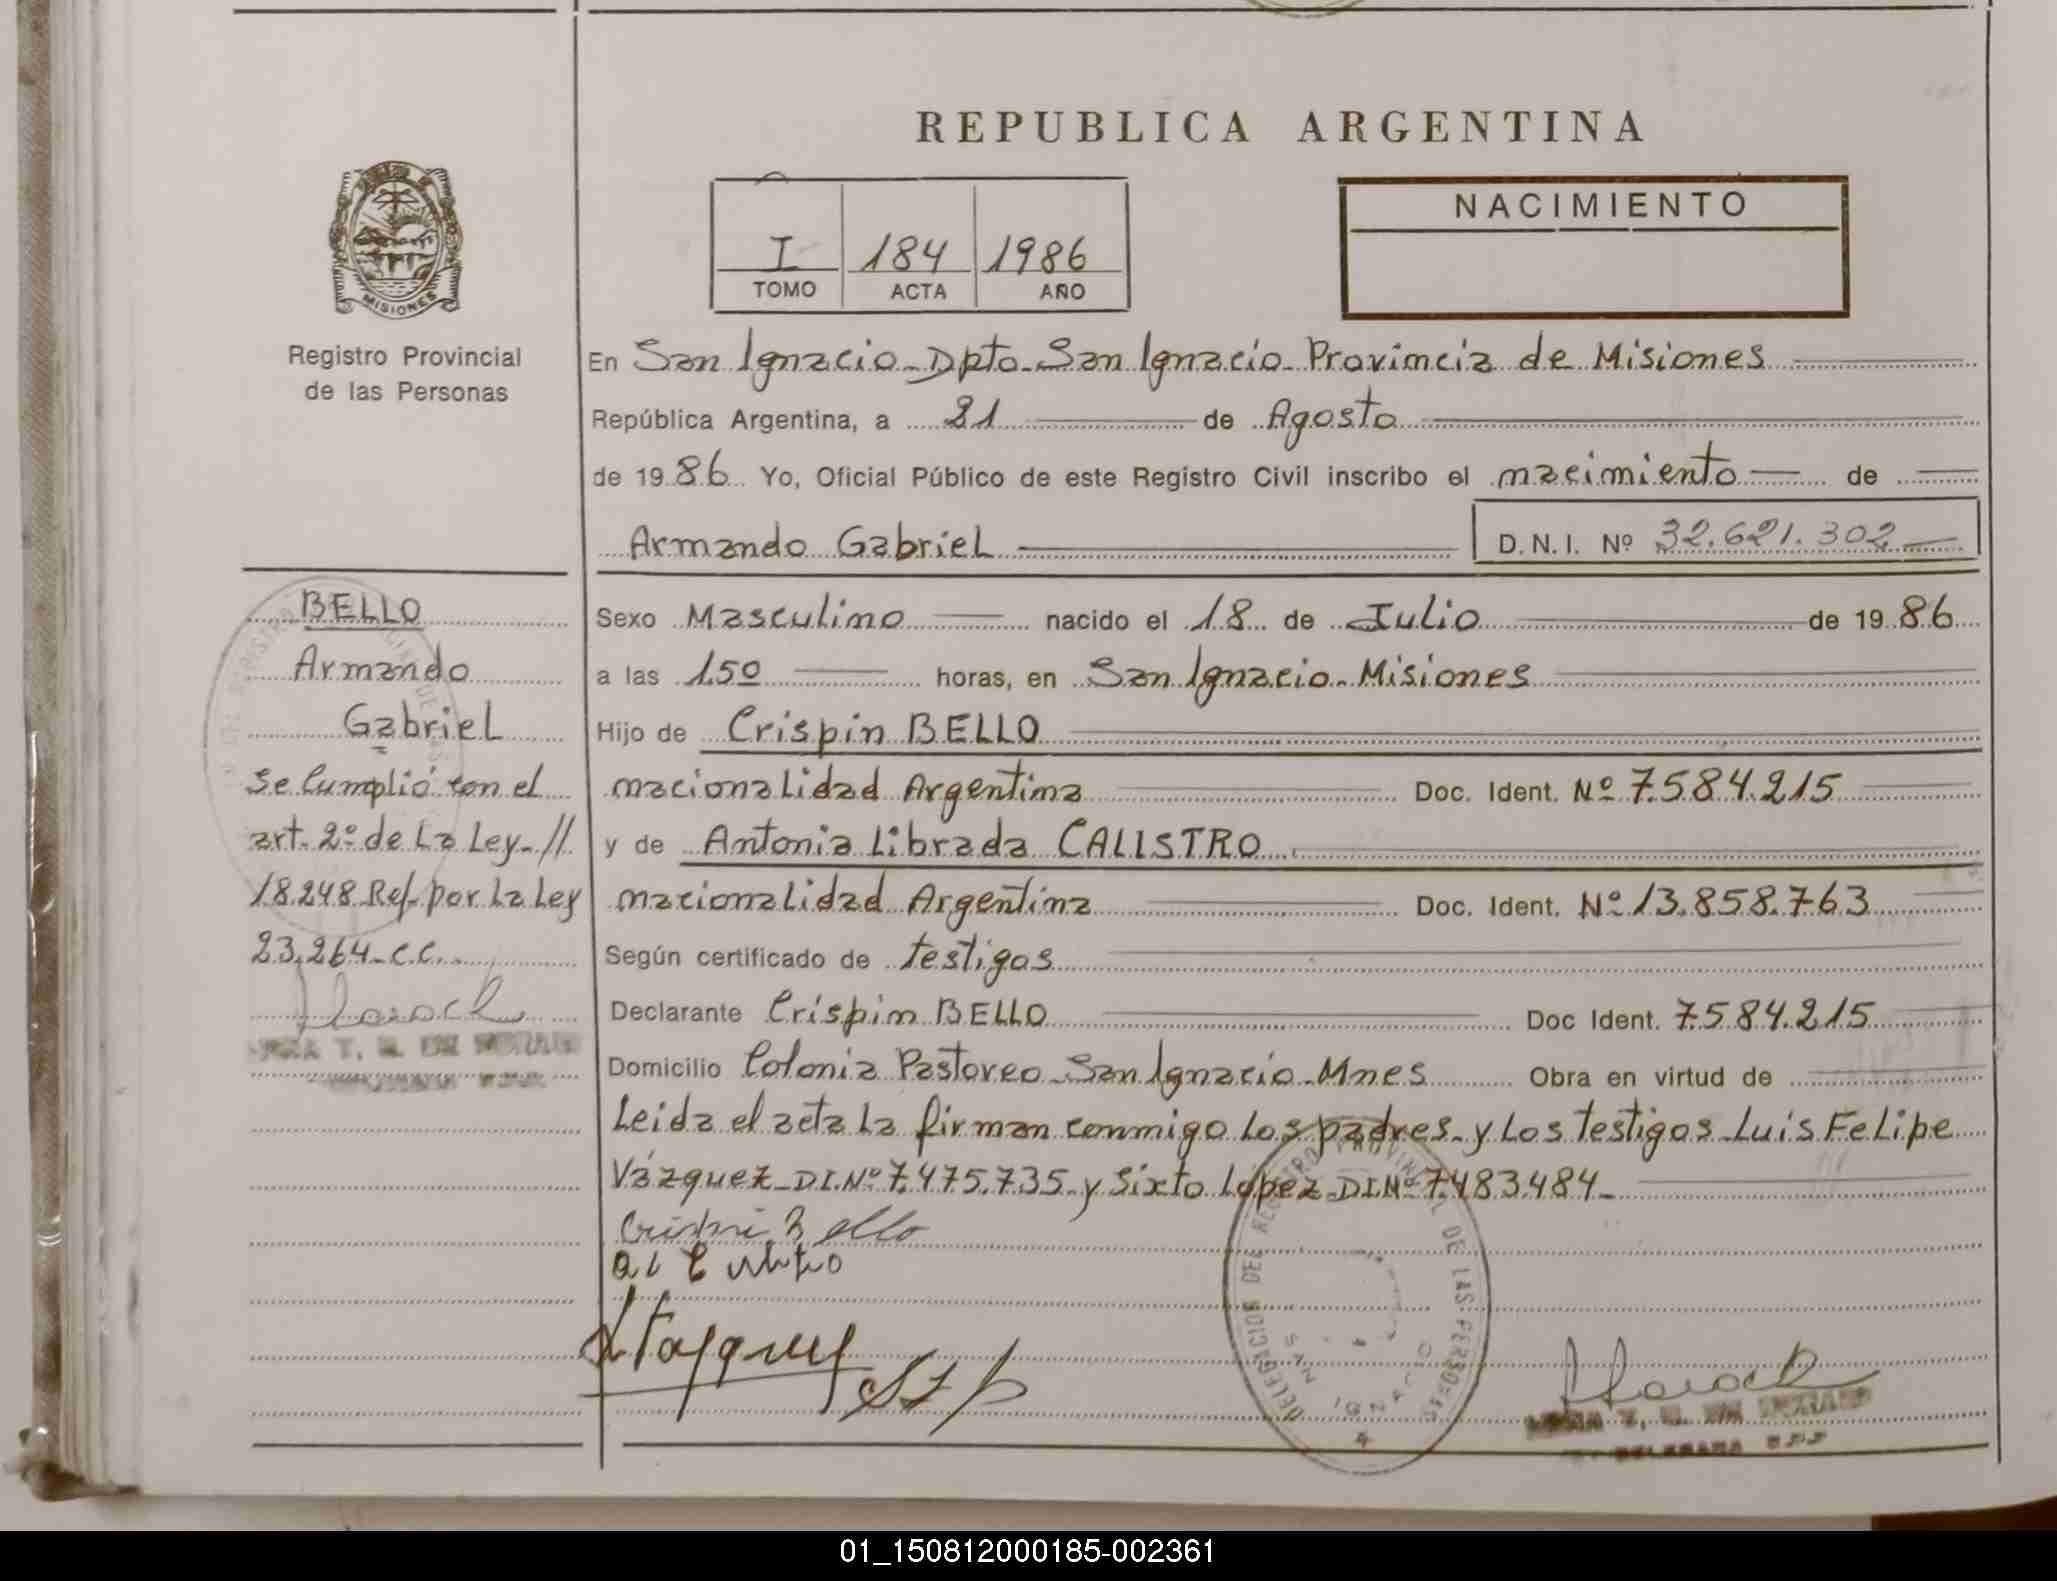 REPUBLICA ARGENTINA
NACIMIENTO
I 184 1986
TOMO ACTA AÑO
MISIONES
Registro Provincial
de las Personas
En San Ignacio - Dpto. San Ignacio - Provincia de Misiones
República Argentina, a 21 de Agosto
de 1986 Yo, Oficial Público de este Registro Civil inscribo el nacimiento de
Armando Gabriel
D.N.I. Nº 32.621.302
BELLO
Armando
Gabriel
Se Cumplió con el
art. 2º de La Ley - //
18.248 Ref. por La Ley
23.264 - C.C.
Sexo Masculino nacido el 18 de Julio de 1986
a las 1,50 horas, en San Ignacio - Misiones
Hijo de Crispin BELLO
nacionalidad Argentina Doc. Ident. Nº 7.584.215
y de Antonia Librada CALISTRO
nacionalidad Argentina Doc. Ident. Nº 13.858.763
Según certificado de testigos
Declarante Crispin BELLO Doc Ident. 7.584.215
Domicilio Colonia Pastoreo - San Ignacio - Mnes Obra en virtud de
Leida el acta La firman conmigo Los padres - y Los testigos - Luis Felipe
Vázquez - D.I.Nº 7.475.735 - y Sixto López - D.I.Nº 7.483.484 -
Bello
DELEGACION DEL REGISTRO PROVINCIAL DE LAS PERSONAS
SAN IGNACIO
01_150812000185-002361